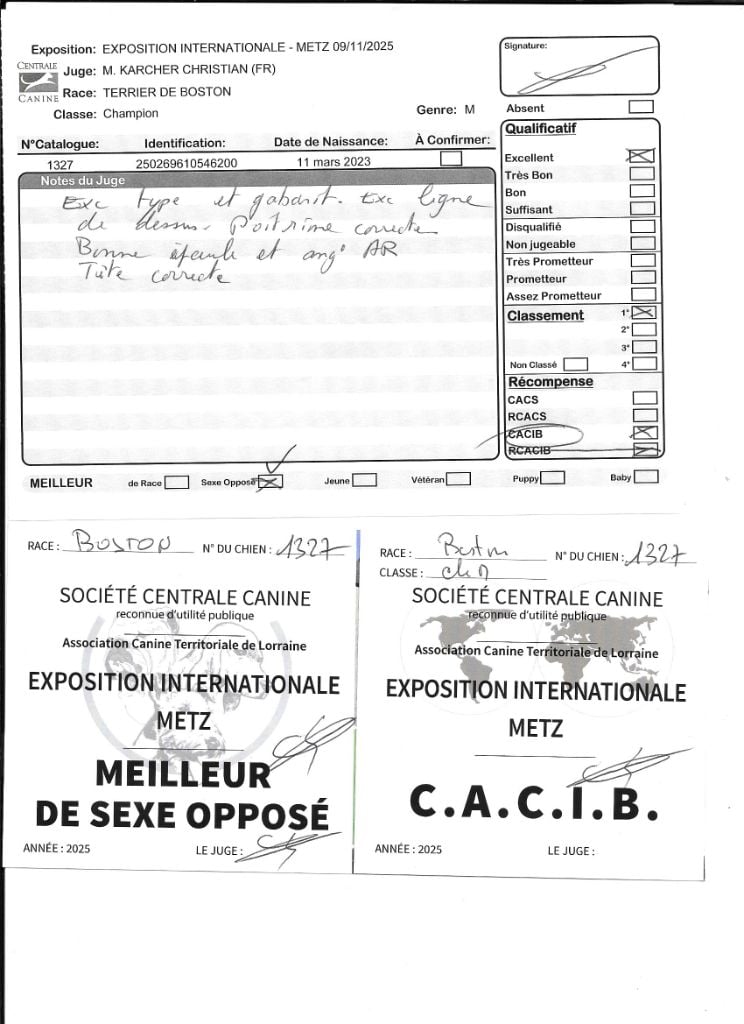 Exposition: EXPOSITION INTERNATIONALE - METZ 09/11/2025
CENTRALE CANINE
Juge: M. KARCHER CHRISTIAN (FR)
Race: TERRIER DE BOSTON
Classe: Champion
Genre: M
N°Catalogue: Identification: Date de Naissance: À Confirmer:
1327 250269610546200 11 mars 2023
Notes du Juge
Exc type et gabarit. Exc ligne
de dessus. Poitrine correcte
Bonne épaule et ang° AR
Tête correcte
Signature:
Absent
Qualificatif
Excellent
Très Bon
Bon
Suffisant
Disqualifié
Non jugeable
Très Prometteur
Prometteur
Assez Prometteur
Classement 1°
2°
3°
Non Classé 4°
Récompense
CACS
RCACS
CACIB
RCACIB
MEILLEUR de Race Sexe Opposé Jeune Vétéran Puppy Baby
RACE : BOSTON N° DU CHIEN : 1327
SOCIÉTÉ CENTRALE CANINE
reconnue d'utilité publique
Association Canine Territoriale de Lorraine
EXPOSITION INTERNATIONALE
METZ
MEILLEUR
DE SEXE OPPOSÉ
ANNÉE : 2025 LE JUGE :
RACE : Boston N° DU CHIEN : 1327
CLASSE :
SOCIÉTÉ CENTRALE CANINE
reconnue d'utilité publique
Association Canine Territoriale de Lorraine
EXPOSITION INTERNATIONALE
METZ
C.A.C.I.B.
ANNÉE : 2025 LE JUGE :